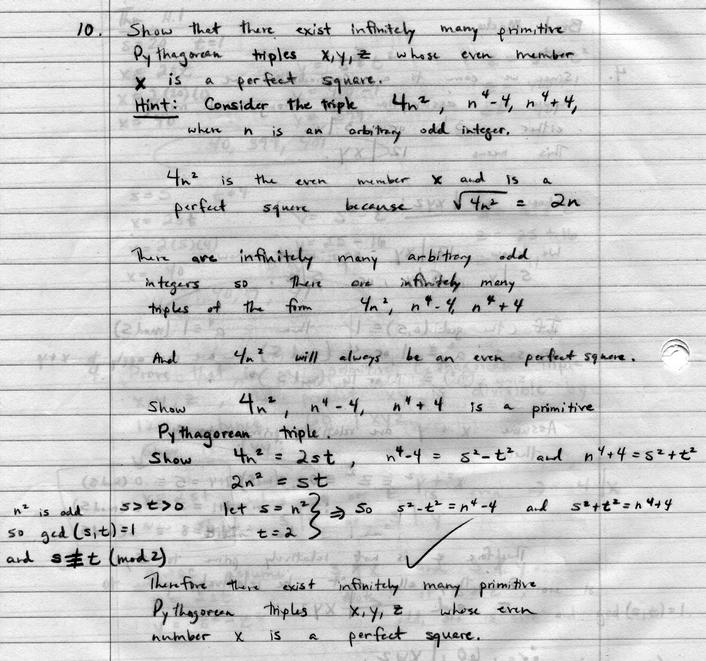 10. Show that there exist infinitely many primitive
Pythagorean triples x, y, z whose even member
x is a perfect square.
Hint: Consider the triple 4n², n⁴-4, n⁴+4,
where n is an arbitrary odd integer.
4n² is the even member x and is a
perfect square because √4n² = 2n
There are infinitely many arbitrary odd
integers so there are infinitely many
triples of the form 4n², n⁴-4, n⁴+4
And 4n² will always be an even perfect square.
Show 4n², n⁴-4, n⁴+4 is a primitive
Pythagorean triple.
Show 4n² = 2st, n⁴-4 = s²-t² and n⁴+4 = s²+t²
2n² = st
n² is odd s>t>0 let s = n² } ⇒ So s²-t² = n⁴-4 and s²+t² = n⁴+4
so gcd(s,t)=1 t = 2
and s≢t (mod 2) ✓
Therefore there exist infinitely many primitive
Pythagorean triples x, y, z whose even
number x is a perfect square.